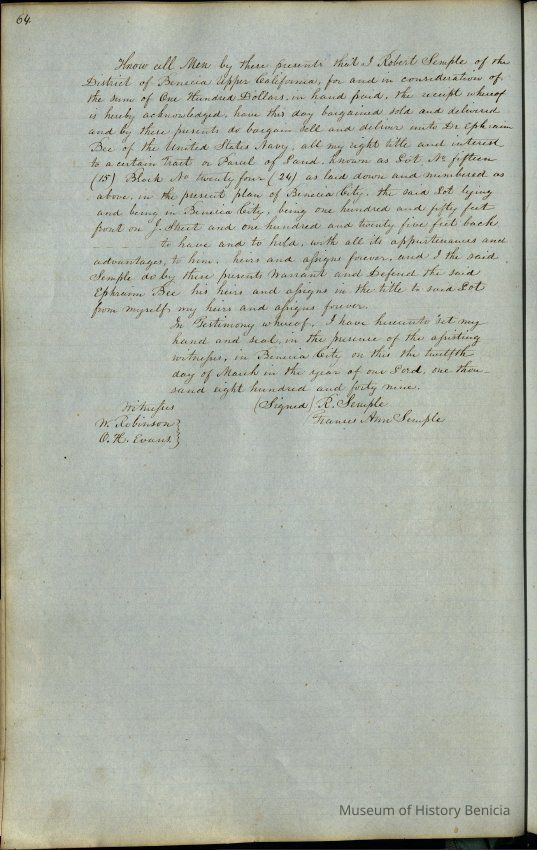 64
Know all Men by these presents that I Robert Semple of the
District of Benecia Upper California, for and in consideration of
the sum of One Hundred Dollars, in hand paid, the receipt whereof
is hereby acknowledged, have this day bargained sold and delivered
and by these presents do bargain sell and deliver unto Dr. Ephraim
Bee of the United States Navy, all my right title and interest
to a certain Tract or Parcel of Land, known as Lot, No fifteen
(15) Block No twenty four (24) as laid down and numbered as
above, in the present plan of Benecia City, the said Lot lying
and being in Benecia City, being one hundred and fifty feet
front on J. Street and one hundred and twenty five feet back
to have and to hold, with all its appurtenances and
advantages, to him, heirs and assigns forever, and I the said
Semple do by these presents Warrant and Defend the said
Ephraim Bee his heirs and assigns in the title to said Lot
from myself, my heirs and assigns forever.
In Testimony whereof, I have hereunto set my
hand and seal, in the presence of the assisting
witnesses, in Benecia City on this the twelfth
day of March in the year of our Lord, one thou
sand eight hundred and forty nine.
Witnesses (Signed) R. Semple
W. Robinson Frances Ann Semple
O. H. Evans
Museum of History Benicia